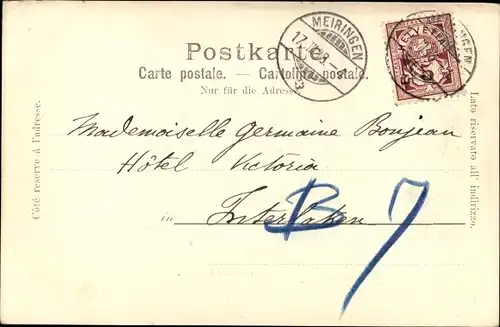 MEIRINGEN
Postkarte.
HELVETIA
Carte postale. — Cartolina postale.
Nur für die Adresse.
Côté réservé à l'adresse.
Lato riservato all' indirizzo.
Mademoiselle Germaine Bonjean
Hôtel Victoria
in Interlaken
B 7